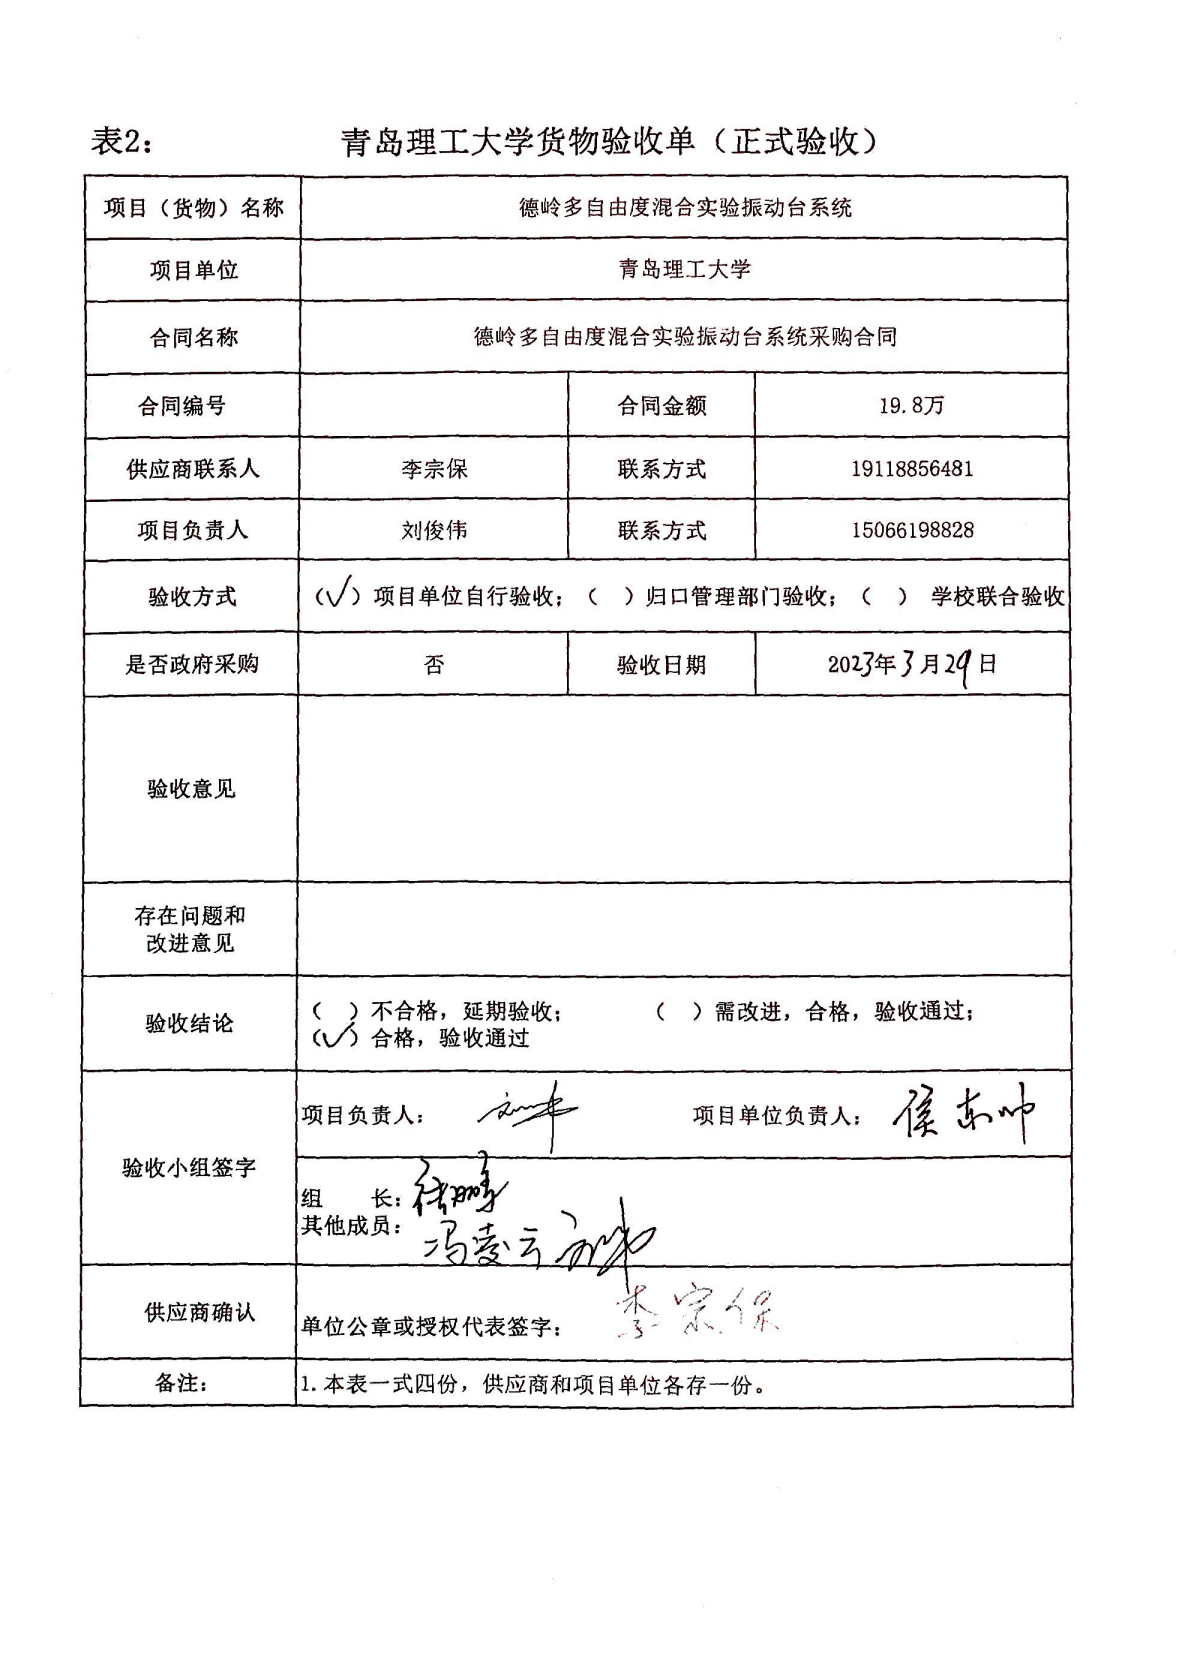 表2： 青岛理工大学货物验收单（正式验收）
项目（货物）名称 德岭多自由度混合实验振动台系统
项目单位 青岛理工大学
合同名称 德岭多自由度混合实验振动台系统采购合同
合同编号 合同金额 19.8万
供应商联系人 李宗保 联系方式 19118856481
项目负责人 刘俊伟 联系方式 15066198828
验收方式 （√）项目单位自行验收；（ ）归口管理部门验收；（ ） 学校联合验收
是否政府采购 否 验收日期 2023年3月29日
验收意见
存在问题和
改进意见
验收结论 （ ）不合格，延期验收； （ ）需改进，合格，验收通过；
（√）合格，验收通过
项目负责人： 项目单位负责人：侯东帅
验收小组签字
组 长：
其他成员： 冯凌云
供应商确认 单位公章或授权代表签字： 李宗保
备注： 1.本表一式四份，供应商和项目单位各存一份。